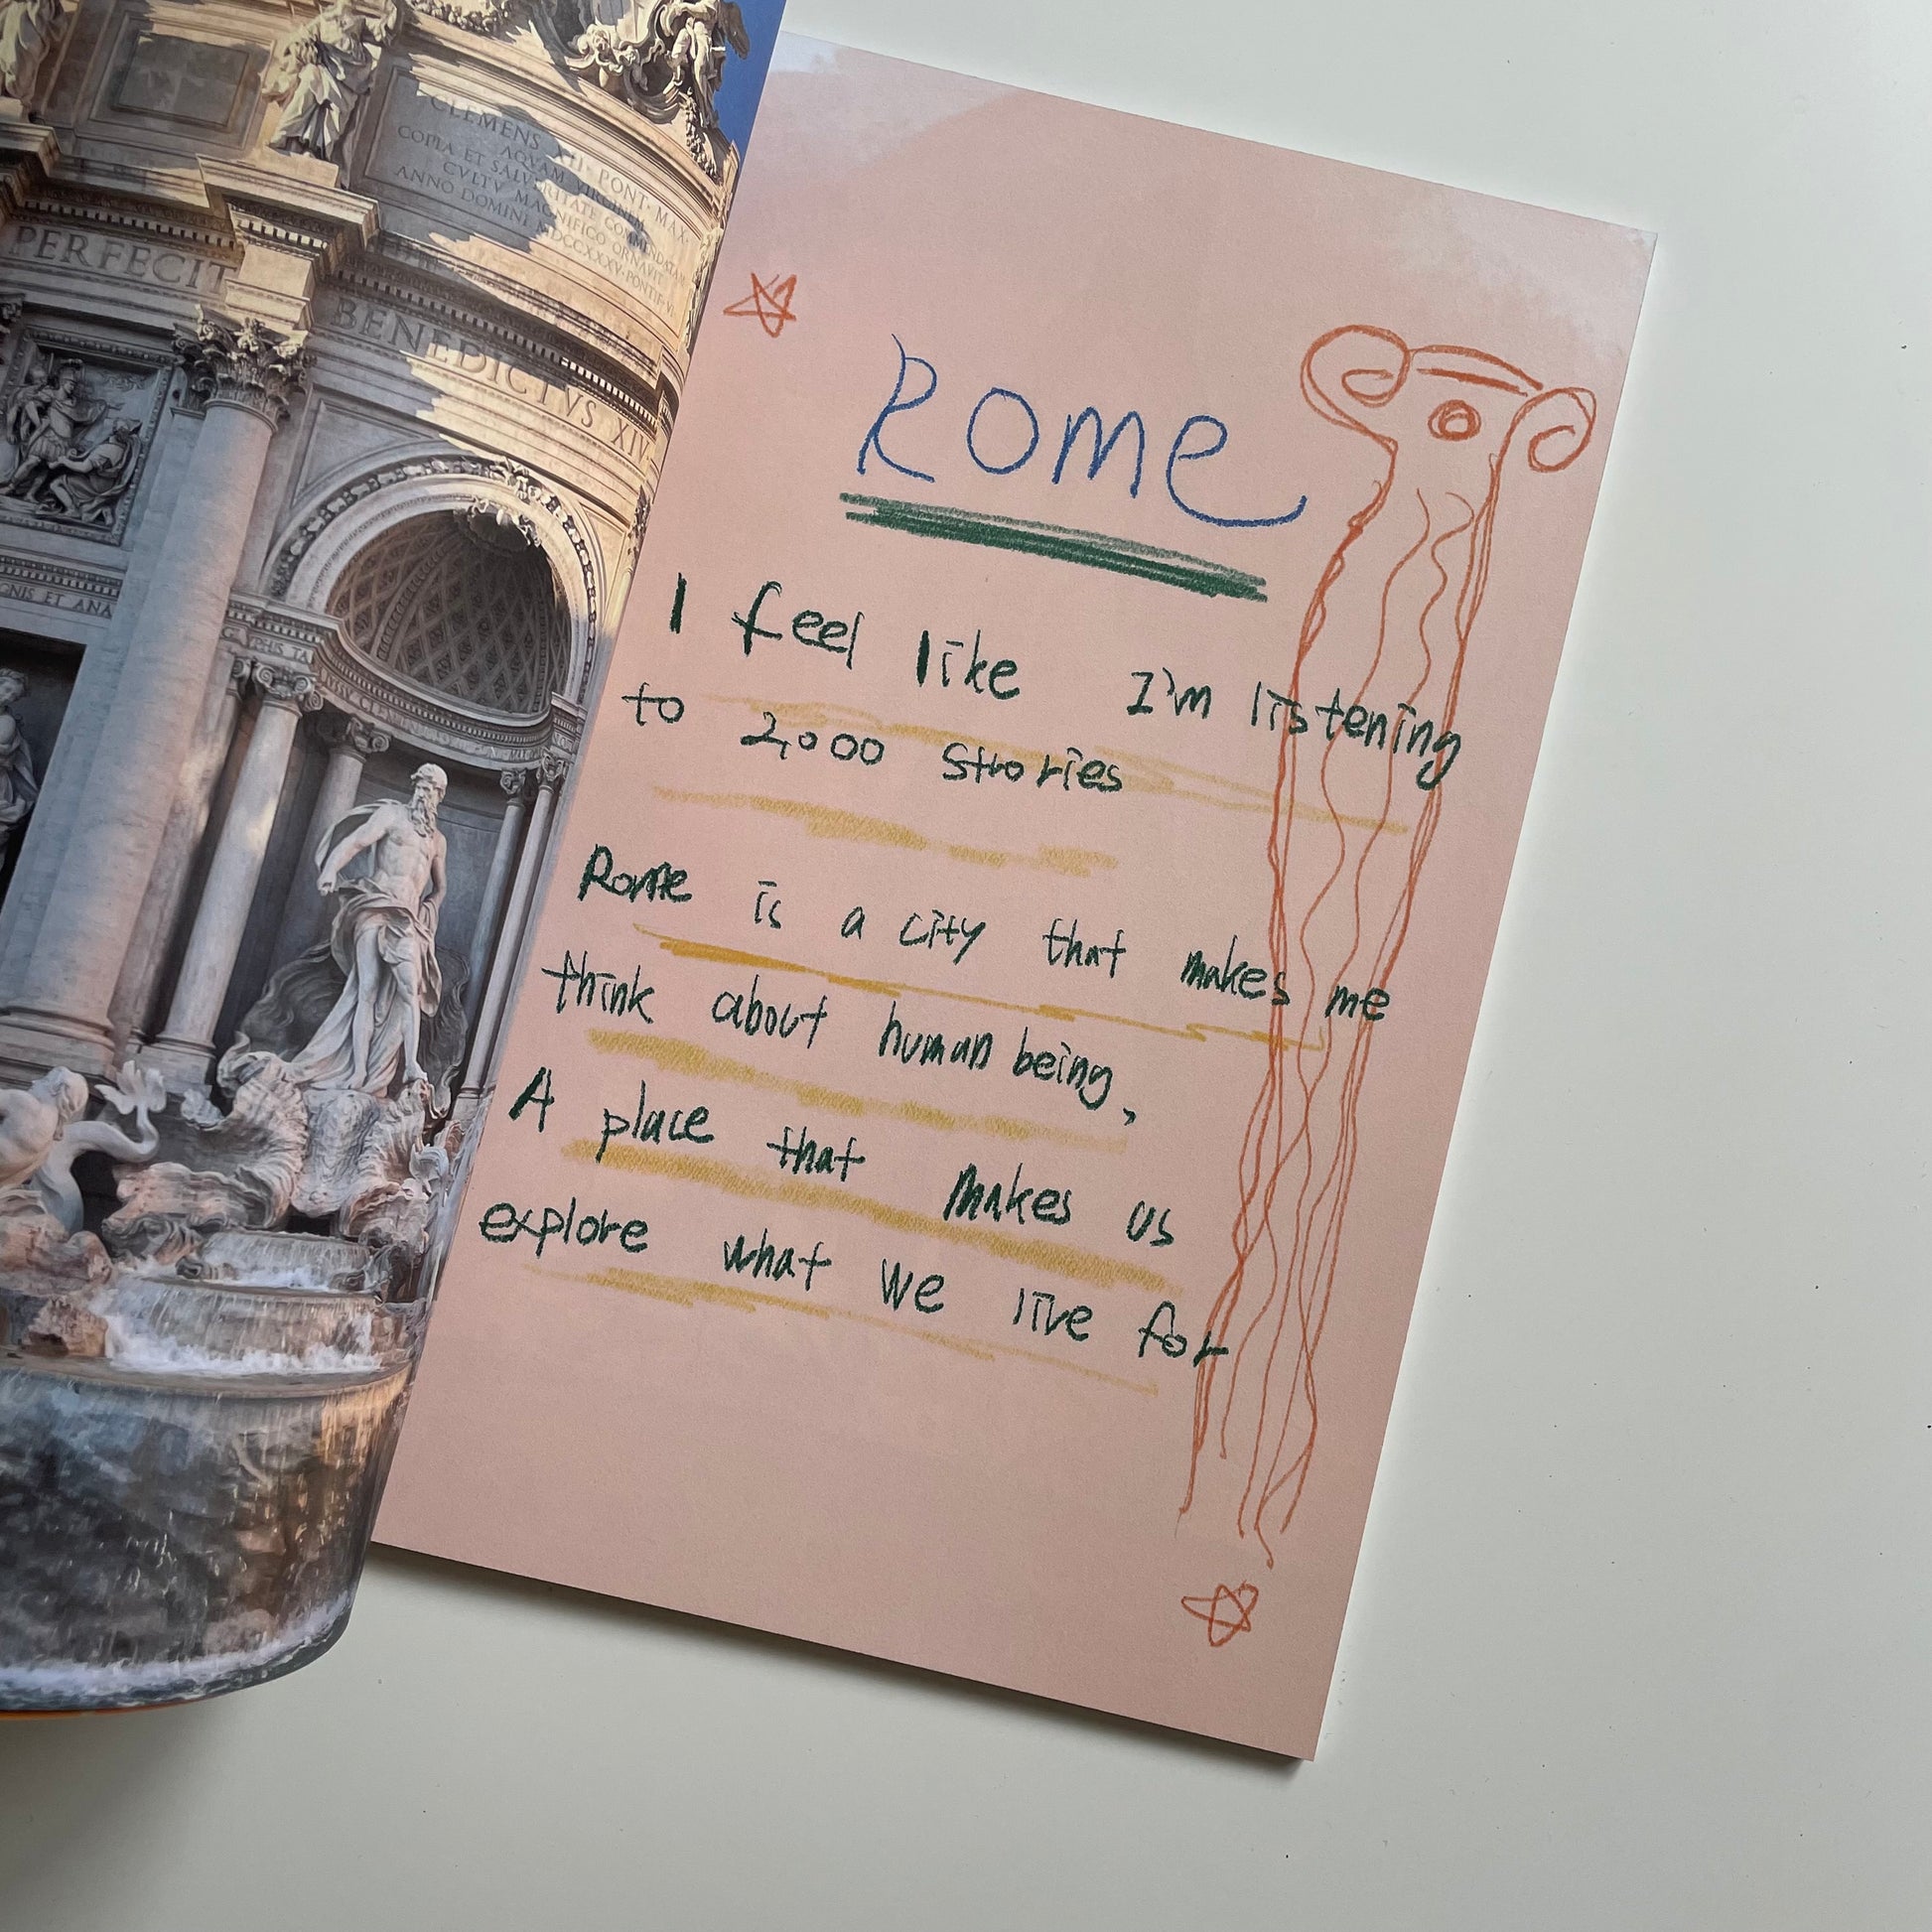 CLEMENS XII · PONT · MAX ·
AQVAM VIRGINEM
COPIA ET SALVBRITATE COMMENDATAM
CVLTV MAGNIFICO ORNAVIT
ANNO DOMINI MDCCXXXV · PONTIF · VI
PERFECIT
BENEDICTVS XIV
GNIS ET ANA
Rome
I feel like I'm listening
to 2,000 strories
Rome is a city that makes me
think about human being,
A place that makes us
explore what we live for